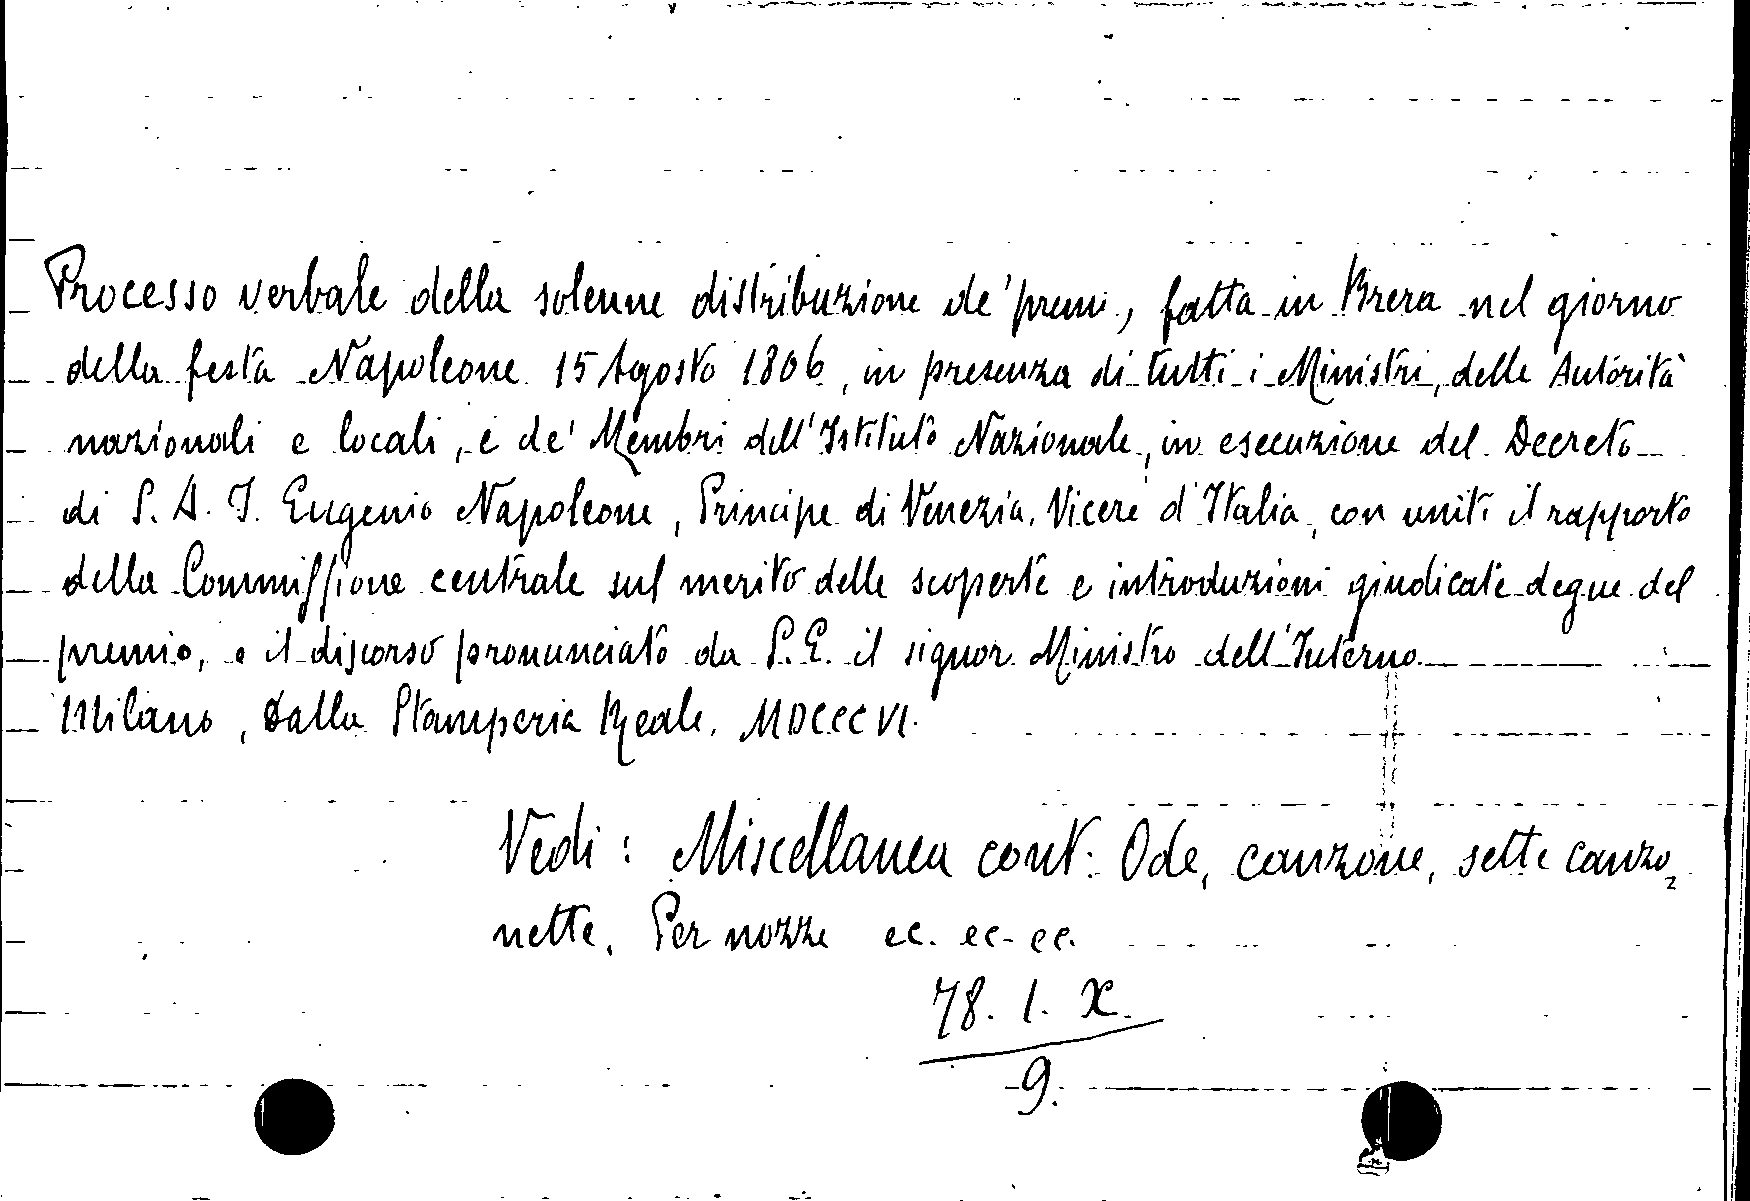 Processo verbale della solenne distribuzione de' premi, fatta in Brera nel giorno
della festa Napoleone 15 Agosto 1806, in presenza di tutti i Ministri, delle Autorità
nazionali e locali, e de' Membri dell'Istituto Nazionale, in esecuzione del Decreto
di S. A. I. Eugenio Napoleone, Principe di Venezia, Vicerè d'Italia, con uniti il rapporto
della Commissione centrale sul merito delle scoperte e introduzioni giudicate degne del
premio, e il discorso pronunciato da S. E. il signor Ministro dell'Interno
Milano, Dalla Stamperia Reale. MDCCCVI.
Vedi: Miscellanea cont. Ode, canzone, sette canzo
nette, Per nozze ec. ec. ec.
78. 1. X.
9.